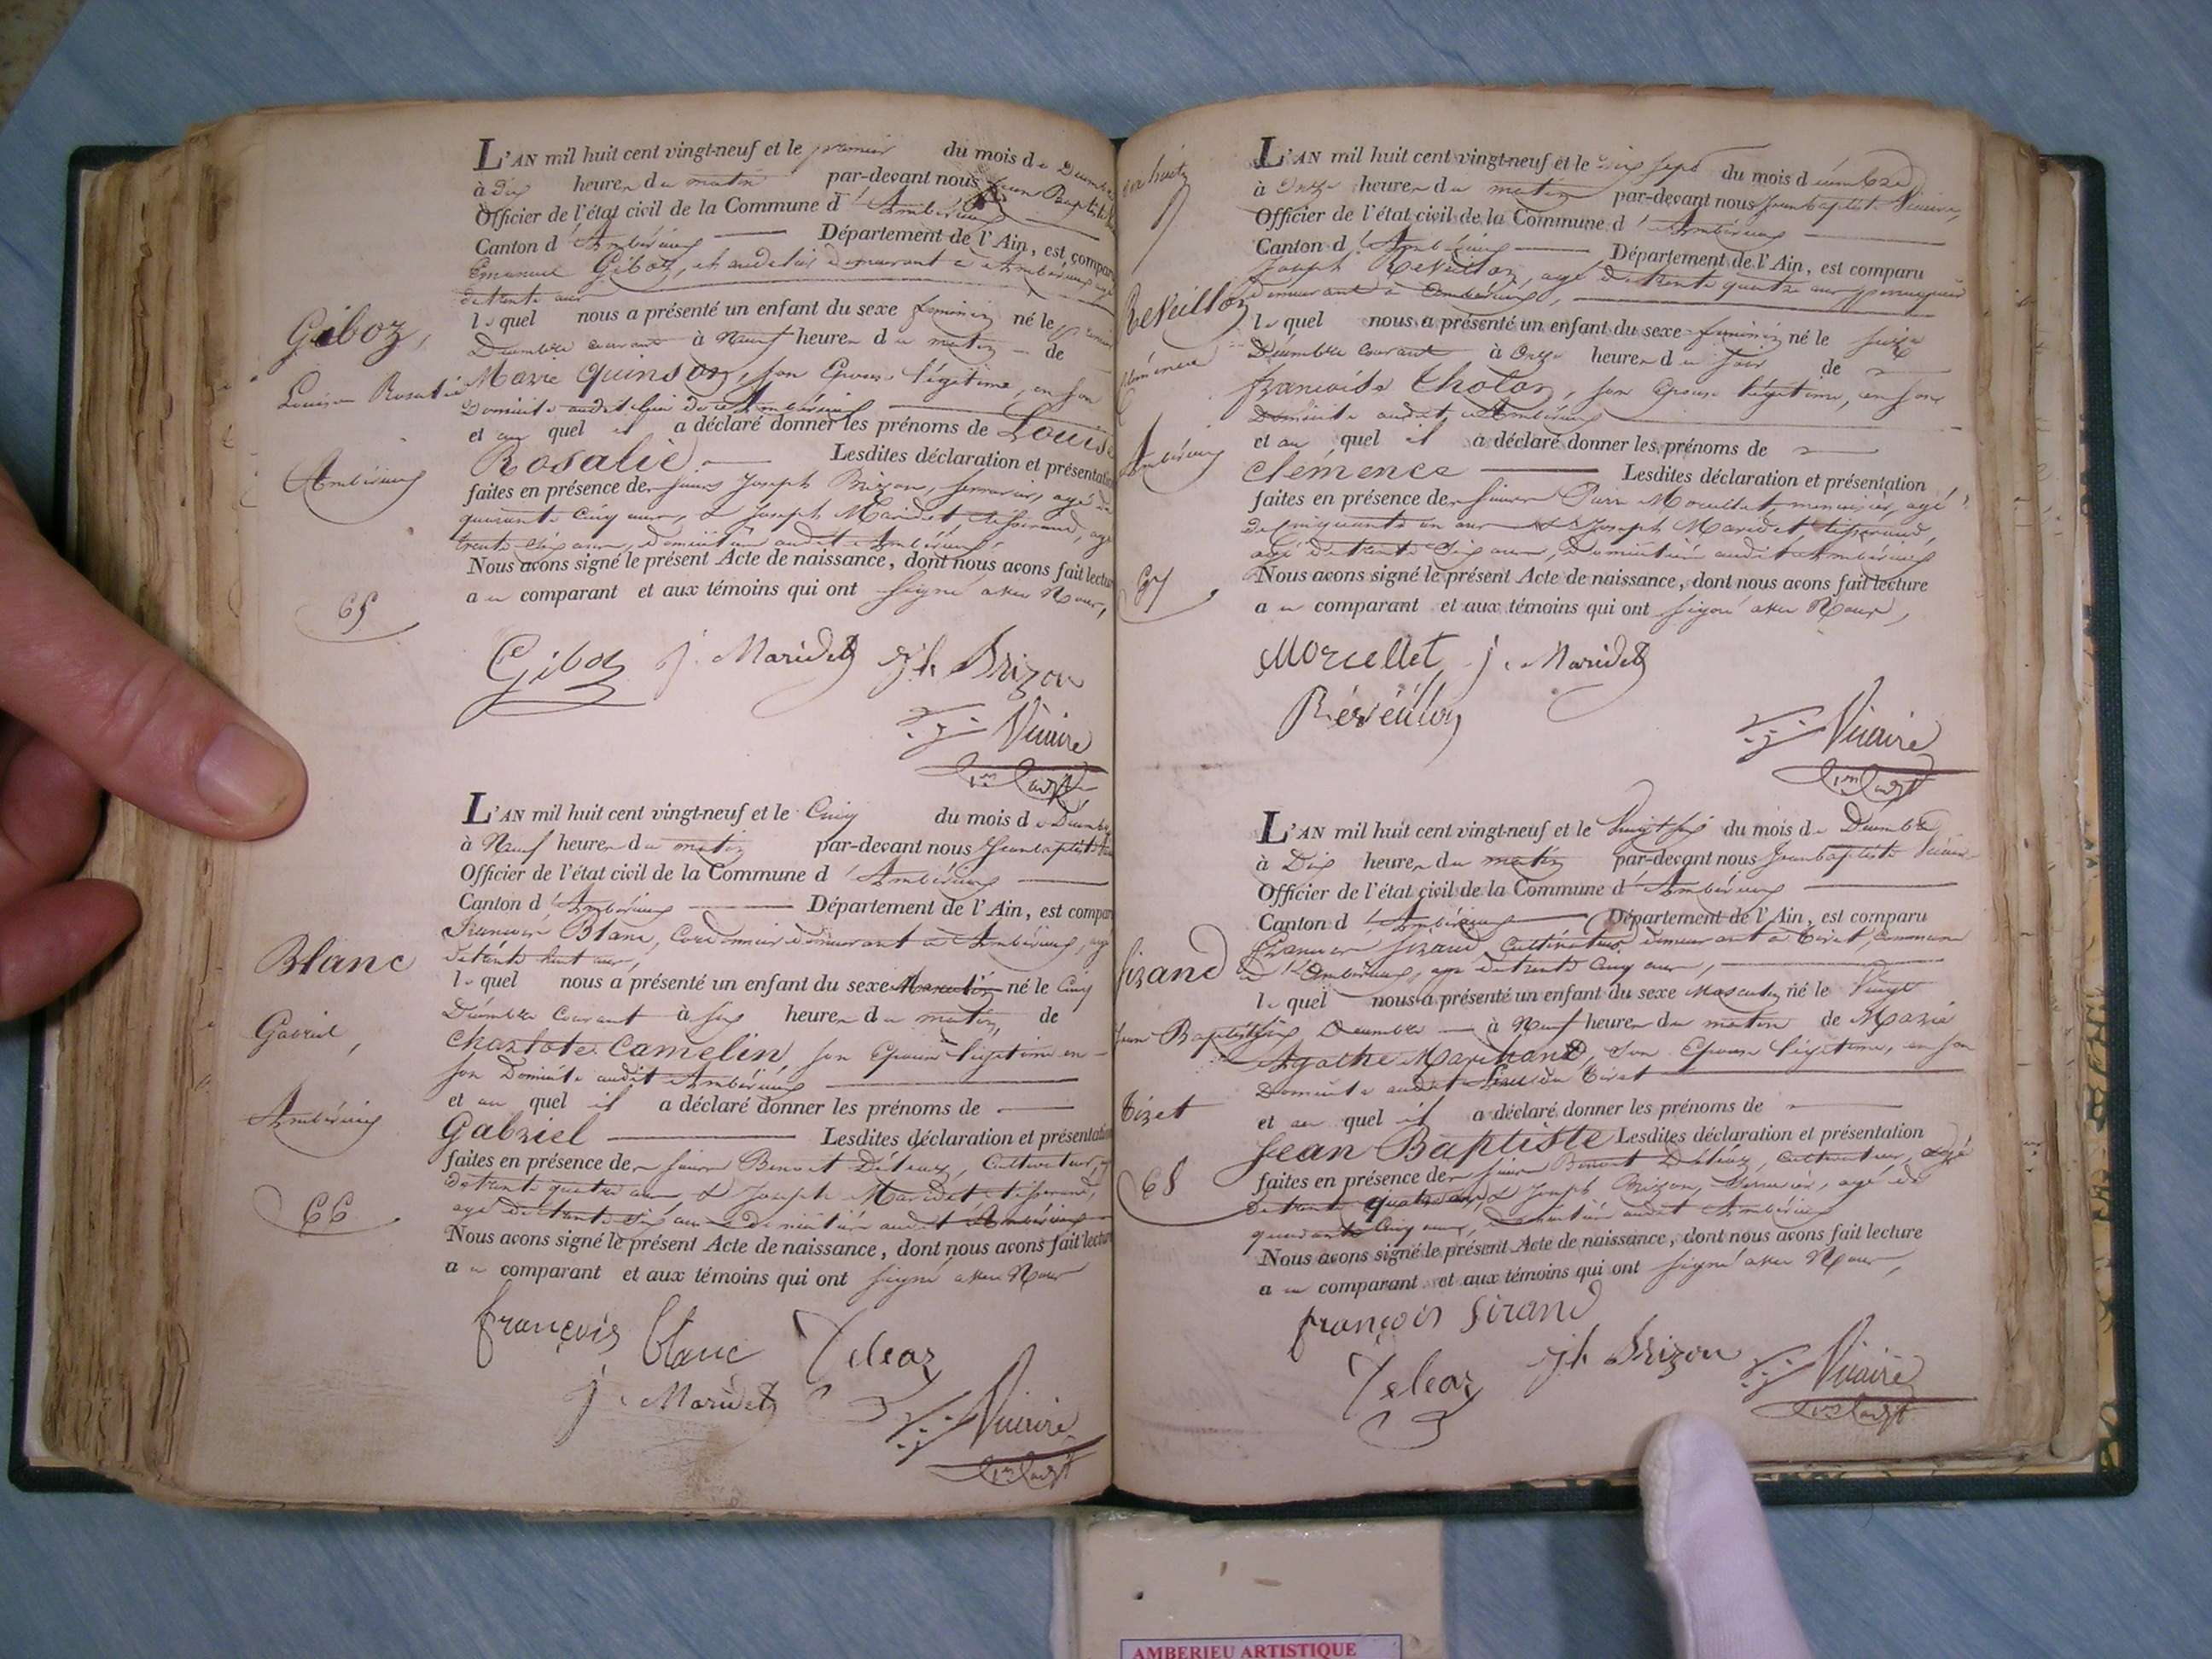 L'AN mil huit cent vingt-neuf et le premier du mois de Décembre
à dix heures du matin par-devant nous Jean Baptiste
Officier de l'état civil de la Commune d'Ambérieux
Canton d'Ambérieux Département de l'Ain, est compar
Emanuel Giboz, demeurant à Ambérieux agé
de trente ans
lequel nous a présenté un enfant du sexe feminin né le premier
Décembre courant à Neuf heures du matin de
Marie Quinson, son Epouse légitime, en son
Domicile audit lieu d'Ambérieux
et auquel il a déclaré donner les prénoms de Louise
Rosalie. Lesdites déclaration et présentation
faites en présence de sieurs Joseph Brizon, serrurier, agé de
quarante cinq ans, & Joseph Maridet, tisserand, agé
trente six ans, domiciliés audit Ambérieux,
Nous avons signé le présent Acte de naissance, dont nous avons fait lecture
au comparant et aux témoins qui ont signé avec Nous,
Giboz,
Louise Rosalie
Ambérieux
65
Giboz j. Maridet jh Brizon
Vicaire
L'AN mil huit cent vingt-neuf et le Cinq du mois de Décembre
à Neuf heures du matin par-devant nous Jean baptiste
Officier de l'état civil de la Commune d'Ambérieux
Canton d'Ambérieux Département de l'Ain, est compar
François Blanc, Cordonnier demeurant à Ambérieux, agé
de trente huit ans,
lequel nous a présenté un enfant du sexe Masculin né le Cinq
Décembre Courant à six heures du matin, de
Charlote Camelin, son Epouse légitime en
son Domicile audit Ambérieux
et auquel il a déclaré donner les prénoms de
Gabriel Lesdites déclaration et présentation
faites en présence de sieurs Benoit Déléaz, Cultivateur,
de trente quatre ans & Joseph Maridet tisserand,
agé de trente six ans domiciliés audit Ambérieux
Nous avons signé le présent Acte de naissance, dont nous avons fait lecture
au comparant et aux témoins qui ont signé avec Nous
Blanc
Gabriel,
Ambérieux
66
françois blanc Deleaz
j. Maridet
Vicaire
L'AN mil huit cent vingt-neuf et le dix sept du mois décembre
à Onze heures du matin par-devant nous Jean baptiste Vicaire,
Officier de l'état civil de la Commune d'Ambérieux
Canton d'Ambérieux Département de l'Ain, est comparu
Joseph Reveillon, agé de trente quatre ans perruquier
demeurant à Ambérieux,
lequel nous a présenté un enfant du sexe feminin né le seize
Décembre courant à Onze heures du soir de
françoise Cholon, son Epouse légitime, en son
Domicile audit Ambérieux
et auquel il a déclaré donner les prénoms de
Clémence Lesdites déclaration et présentation
faites en présence de sieurs Pierre Morcellet, menuisier, agé
de cinquante un ans & Joseph Maridet tisserand,
agé de trente six ans, domiciliés audit Ambérieux
Nous avons signé le présent Acte de naissance, dont nous avons fait lecture
au comparant et aux témoins qui ont signé avec Nous,
Reveillon
Clémence
Ambérieux
67
Morcellet, j. Maridet
Réveillon
Vicaire
L'AN mil huit cent vingt-neuf et le Vingt six du mois de Décembre
à Dix heures du matin par-devant nous Jean baptiste Vicaire
Officier de l'état civil de la Commune d'Ambérieux
Canton d'Ambérieux Département de l'Ain, est comparu
François Sirand, Cultivateur demeurant à Tiret, Commune
d'Ambérieux, agé de trente cinq ans,
lequel nous a présenté un enfant du sexe Masculin né le Vingt
Décembre à Neuf heures du matin de Marie
Agathe Marchand, son Epouse légitime, en son
Domicile audit lieu du Tiret
et auquel il a déclaré donner les prénoms de
Jean Baptiste Lesdites déclaration et présentation
faites en présence de sieurs Benoit Déléaz, cultivateur, agé
de trente quatre ans, & Joseph Brizon, Serrurier, agé de
quarante Cinq ans, domiciliés audit Ambérieux
Nous avons signé le présent Acte de naissance, dont nous avons fait lecture
au comparant et aux témoins qui ont signé avec Nous,
Sirand
Jean Baptiste
Tiret
68
françois Sirand
Deleaz jh Brizon Vicaire
AMBERIEU ARTISTIQUE